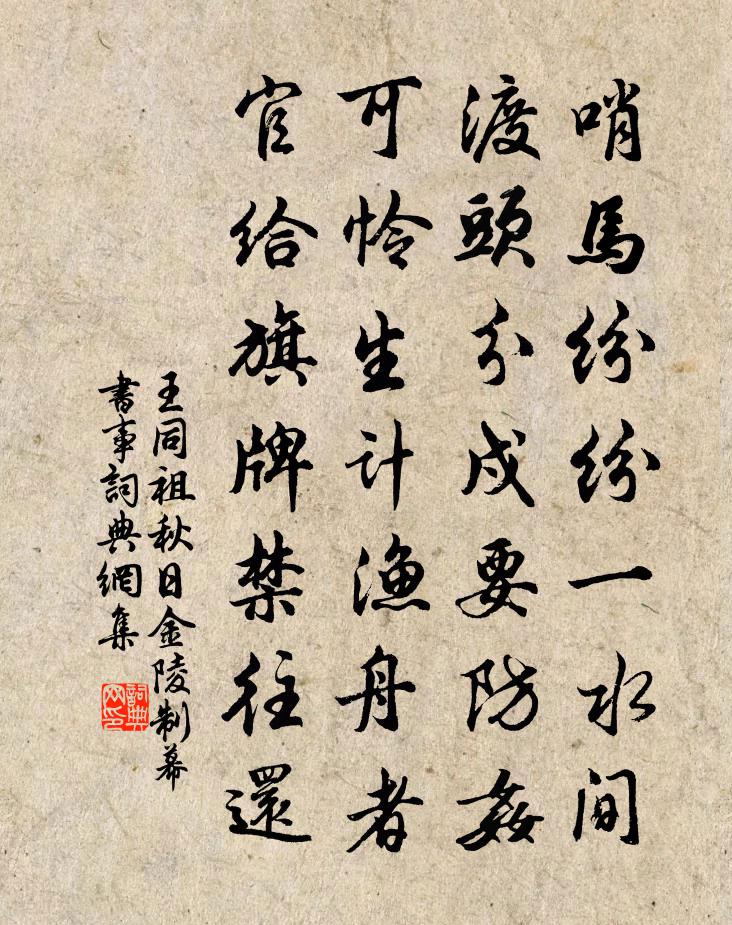 哨馬紛紛一水間
渡頭分戍要防姦
可怜生計漁舟者
官給旗牌禁往還
王同祖秋日金陵制幕
書事詞典網集
詞典网印